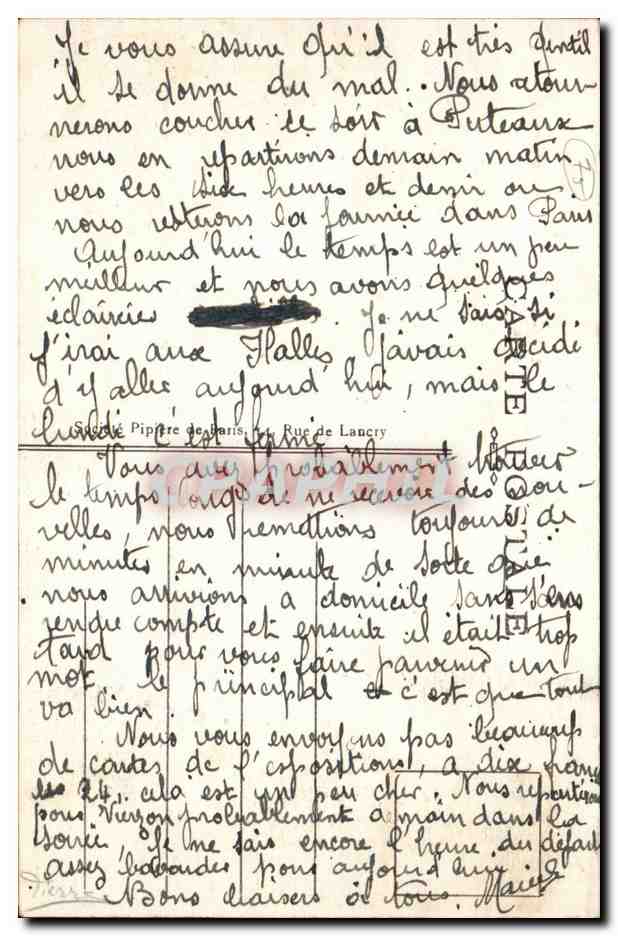 Je vous assure qu'il est très gentil
il se donne du mal. Nous retour-
nerons coucher ce soir à Puteaux
nous en repartirons demain matin
vers les six heures et demi ou
nous resterons la journée dans Paris
Aujourd'hui le temps est un peu
meilleur et nous avons quelques
éclaircies. Je ne sais si
j'irai aux Halles, j'avais décidé
d'y aller aujourd'hui, mais le
lundi c'est fermé
Société Pipière de Paris, Rue de Lancry
CARTE POSTALE
Vous avez probablement trouver
le temps long de ne recevoir des nou-
velles, nous remettions toujours de
minutes en minute de sorte que
nous arrivions a domicile sans s'en
rendre compte et ensuite il était trop
tard pour vous faire parvenir un
mot, le principal c'est que tout
va bien.
Nous vous envoyons pas beaucoup
de cartes de l'espositions, a dix francs
les 24, cela est un peu cher. Nous repartirons
pour Vierzon probablement demain dans la
soirée, Je ne sais encore l'heure du défaut
assez bavarder pour aujourd'hui
Bons baisers à tous.
Pierre